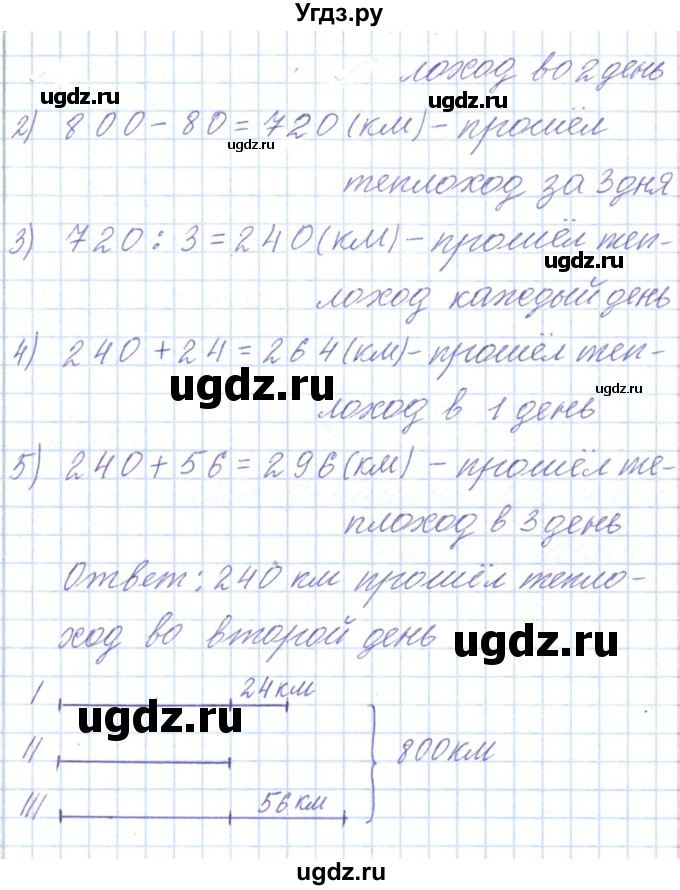 Угдз.ру
лоход во 2 день
ugdz.ru ugdz.ru
2) 800 - 80 = 720 (км) - прошёл
ugdz.ru
теплоход за 3 дня
3) 720 : 3 = 240 (км) - прошёл теп-
ugdz.ru
лоход каждый день
4) 240 + 24 = 264 (км) - прошёл теп-
ugdz.ru ugdz.ru
лоход в 1 день
5) 240 + 56 = 296 (км) - прошёл те-
плоход в 3 день
Ответ: 240 км прошёл тепло-
ход во второй день
ugdz.ru
I 24 км
ugdz.ru
II 800 км
III 56 км
ugdz.ru